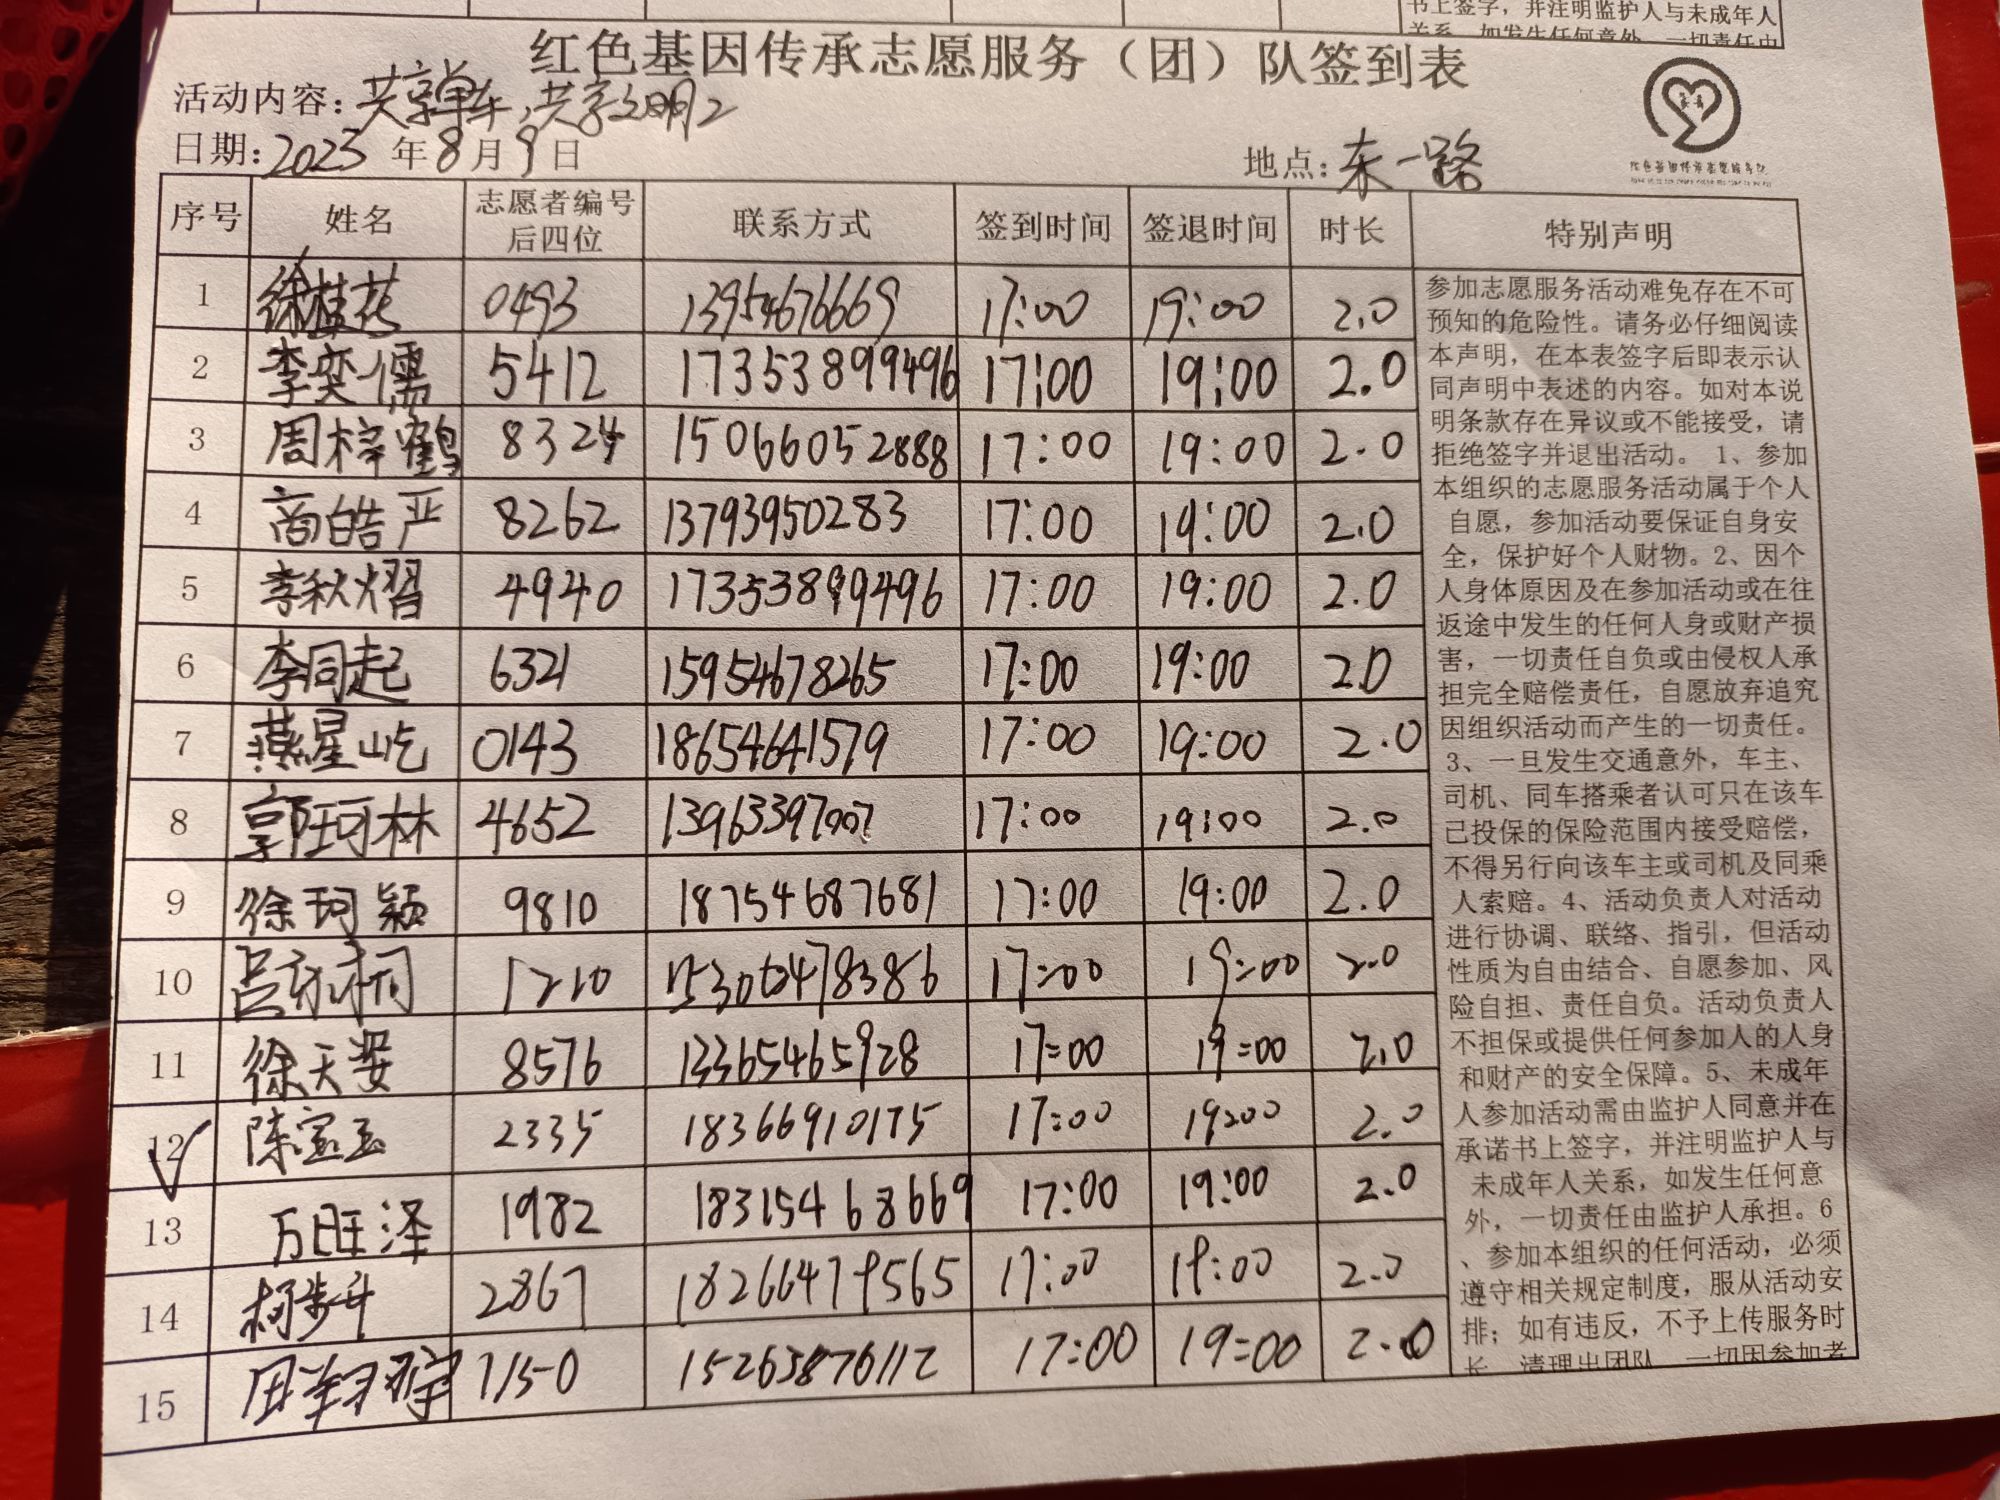 书上签字，并注明监护人与未成年人
关系，如发生任何意外，一切责任由
红色基因传承志愿服务（团）队签到表
活动内容：共享单车，共享文明2
日期：2023 年 8 月 9 日
地点：东一路
序号 姓名 志愿者编号后四位 联系方式 签到时间 签退时间 时长 特别声明
1 徐桂花 0493 13954676669 17:00 19:00 2.0
2 李奕儒 5412 17353899496 17:00 19:00 2.0
3 周梓鹤 8324 15066052888 17:00 19:00 2.0
4 商皓严 8262 13793950283 17:00 19:00 2.0
5 李秋熠 4940 17353899496 17:00 19:00 2.0
6 李同起 6321 15954678265 17:00 19:00 2.0
7 燕星屹 0143 18654641579 17:00 19:00 2.0
8 郭珂林 4652 13963397007 17:00 19:00 2.0
9 徐珂颖 9810 18754687681 17:00 19:00 2.0
10 1210 17:00 19:00 2.0
11 徐天安 8576 13365465928 17:00 19:00 2.0
12 陈宝玉 2335 18366910175 17:00 19:00 2.0
13 万旺泽 1982 18315468669 17:00 19:00 2.0
14 2867 17:00 19:00 2.0
15 7150 15263876112 17:00 19:00 2.0
参加志愿服务活动难免存在不可
预知的危险性。请务必仔细阅读
本声明，在本表签字后即表示认
同声明中表述的内容。如对本说
明条款存在异议或不能接受，请
拒绝签字并退出活动。 1、参加
本组织的志愿服务活动属于个人
自愿，参加活动要保证自身安
全，保护好个人财物。2、因个
人身体原因及在参加活动或在往
返途中发生的任何人身或财产损
害，一切责任自负或由侵权人承
担完全赔偿责任，自愿放弃追究
因组织活动而产生的一切责任。
3、一旦发生交通意外，车主、
司机、同车搭乘者认可只在该车
已投保的保险范围内接受赔偿，
不得另行向该车主或司机及同乘
人索赔。4、活动负责人对活动
进行协调、联络、指引，但活动
性质为自由结合、自愿参加、风
险自担、责任自负。活动负责人
不担保或提供任何参加人的人身
和财产的安全保障。5、未成年
人参加活动需由监护人同意并在
承诺书上签字，并注明监护人与
未成年人关系，如发生任何意
外，一切责任由监护人承担。6
、参加本组织的任何活动，必须
遵守相关规定制度，服从活动安
排；如有违反，不予上传服务时
长，清理出团队，一切因参加者